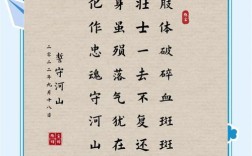 肢体破碎血斑斑
壮士一去不复还
身虽殒落气犹在
化作忠魂守河山
誓守河山
二〇二二年九月十八日